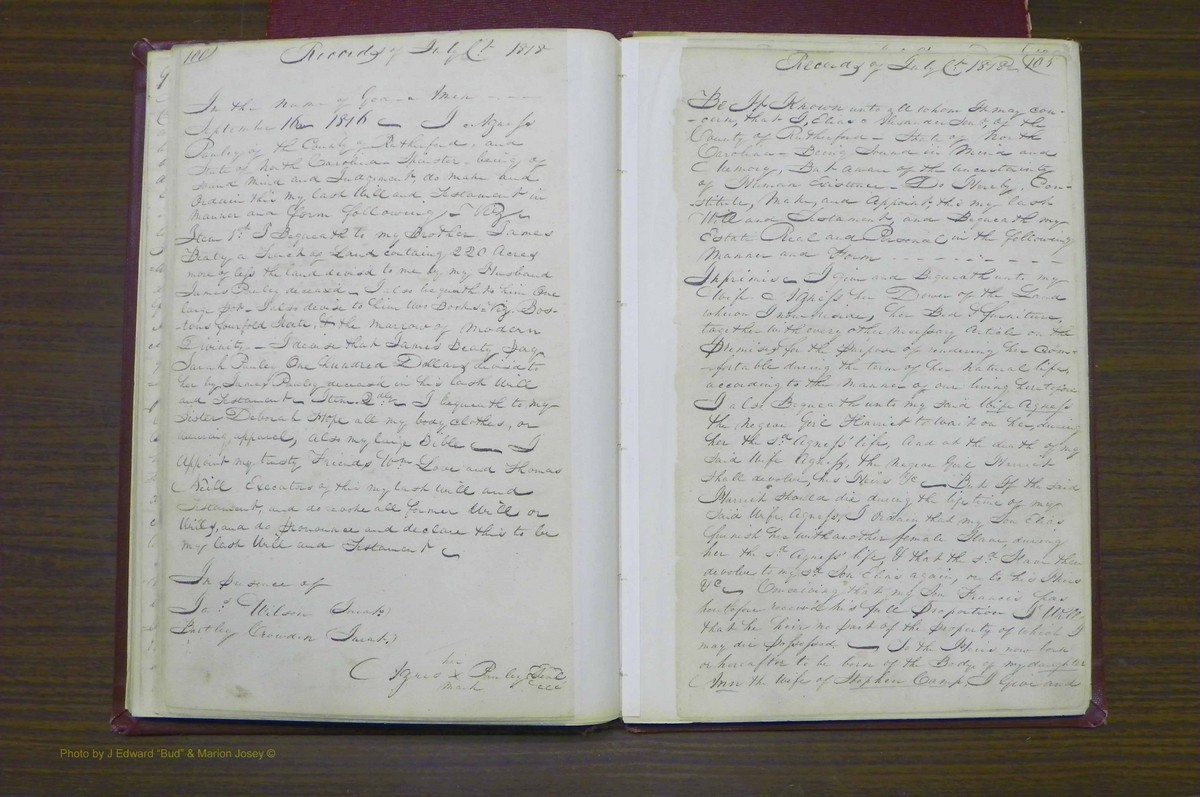 100 Records of July Ct 1818
In the Name of God Amen
September 1816 I Agness
Panley of the County of Rutherford, and
State of North Carolina Spinster, being of
Sound mind and Judgement, do make and
Ordain this my last Will and Testament in
manner and form following, Viz
Item 1st I Bequeath to my Brother James
Beaty a Track of Land containg 220 Acres
more or less the land devised to me by my Husband
James Panley deceased I also bequeath to him One
large pot I also devise to him two Books Viz. Bos-
tons fourfold State, & the Marrow of Modern
Divinity. I deease that James Beaty pay
Sarah Panley One Hundred Dollars devised to
her by James Panley deceased in his last Will
and Testament Item 2dly I bequeath to my
Sister Deborah Hope all my body clothes, or
wearing apparel, also my large Bible I
Appoint my trusty Friends Wm Love and Thomas
Neill Executors of this my last Will and
Testament, and do revoke all former Will or
Wills, and do pronounce and declare this to be
my last Will and Testament
In presence of
Jas Wilson Jurat
Bartley Crowder Jurat
her
Agness x Panley Seal
mark
Records of July Ct 1818 105
Be It Known unto all whom It may con-
-cern, that I, Elias Alexander Senr of the
County of Rutherford State of North
Carolina Being Sound in Mind and
Memory, But aware of the uncertainty
of Human Existence Do Hereby Con-
stitute, Make, and Appoint this my last
Will and Testament, and Bequeath my
Estate Real and Personal in the following
Manner and Form
Inprimis I Give and Bequeath unto my
Wife Agness her Dower of the Land
whereon I now reside, her Bed & furniture,
together with every other necessary Article on the
Premises for the purpose of rendering her Com-
-fortable during the term of her Natural life,
according to the Manner of our living heretofore
I also Bequeath unto my said Wife Agness
the Negroe Girl Harriet to wait on her, during
her the sd Agness' life, And at the death of my
said Wife Agness, the Negroe Girl Harriet
shall devolve, his Heirs &c But If the said
Harriet should die during the life time of my
said Wife Agness, I Ordain that my Son Elias
furnish her with another female Slave during
her the sd Agness' life, & that the sd Slave then
devolve to my sd Son Elias again, or to his Heirs
&c Conceiving that my Son Francis has
heretofore received his full Proportion I Will
that he heirs no part of the property of which I
may die possessed. To the Heirs now born
or hereafter to be born of the Body of my daughter
Ann the Wife of Stephen Camp, I Give and
Photo by J Edward "Bud" & Marion Josey ©